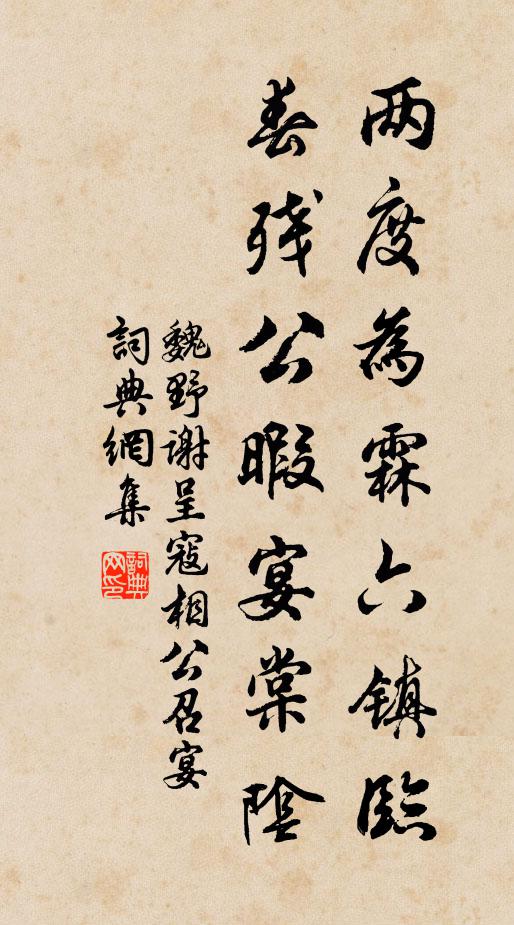 两度為霖六镇臨
春残公暇宴棠陰
魏野谢呈寇相公召宴
詞典網集
詞典网印